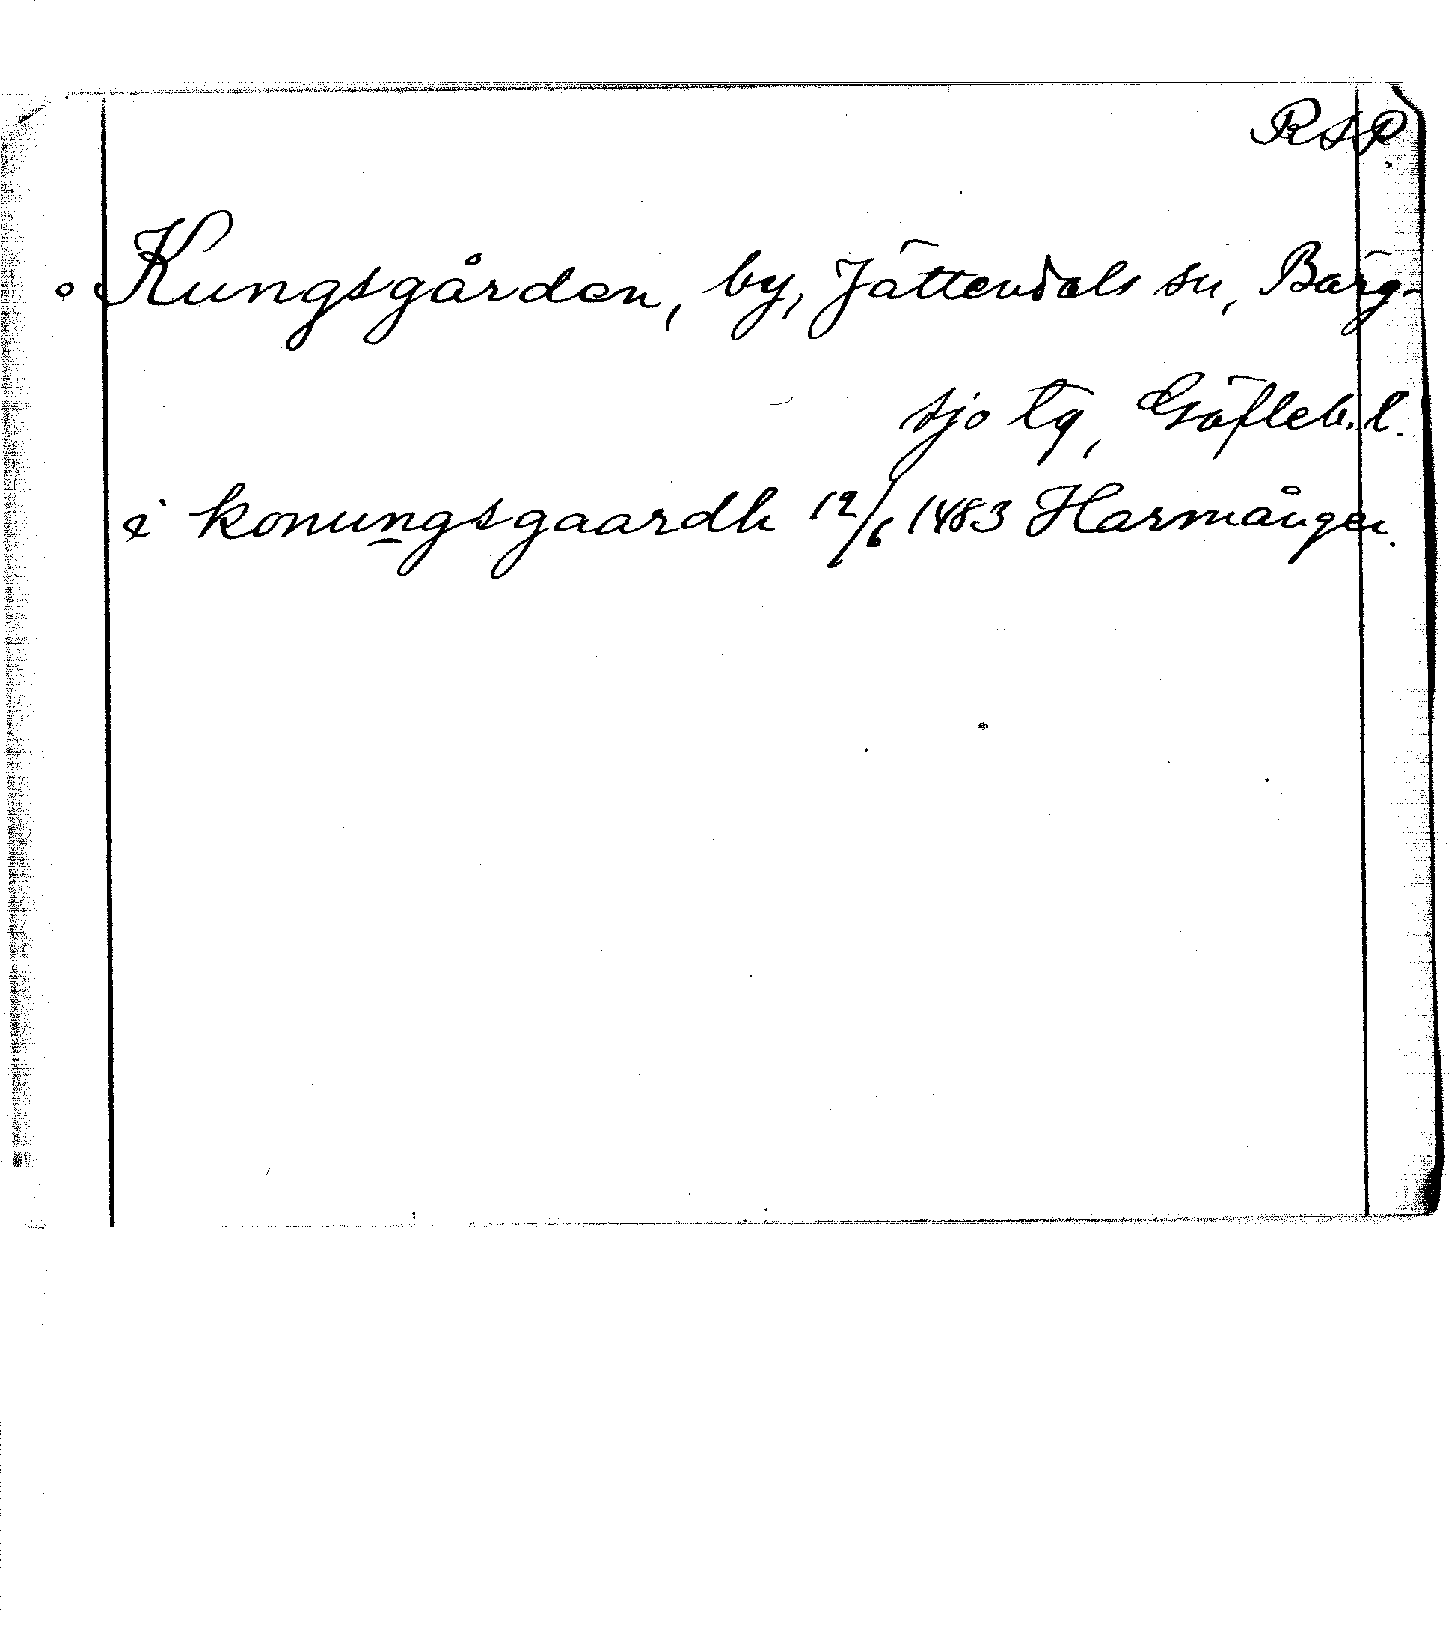 RAP
Kungsgården, by, Jättendals sn, Bärg-
sjö tg, Gäfleb. l.
i konungsgaardh 12/6 1483 Harmången.